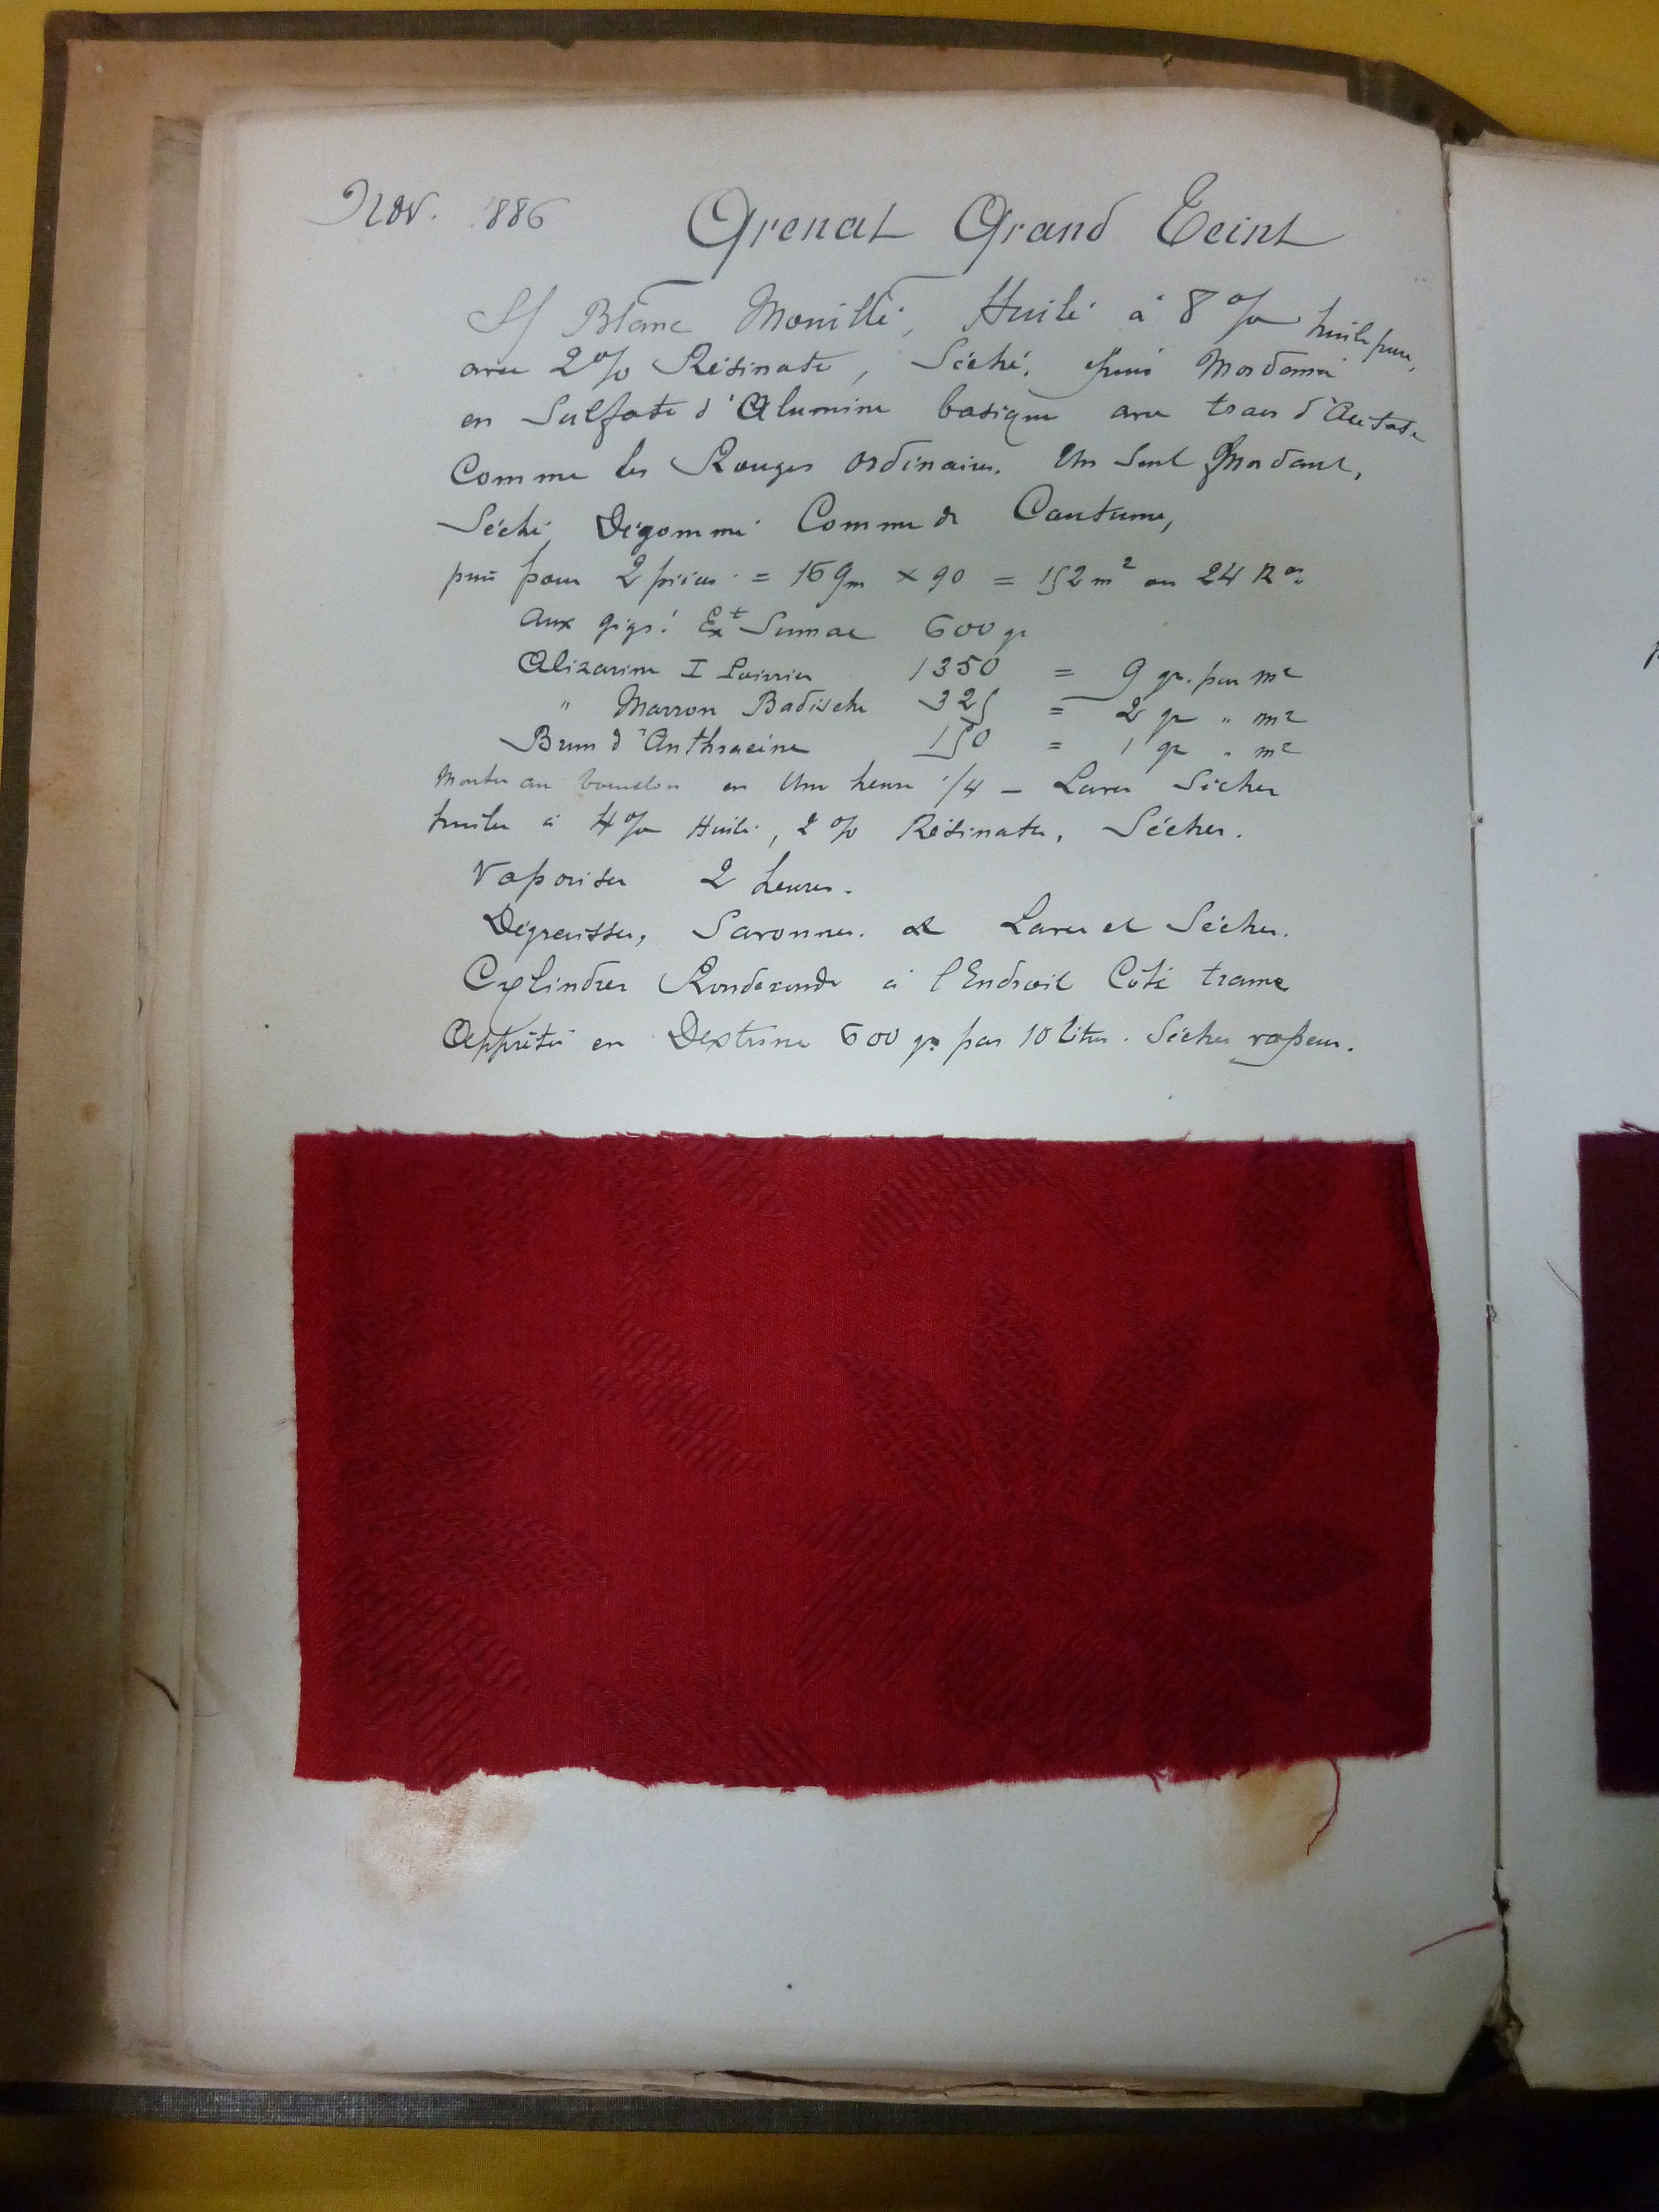 Nov. 1886 Grenat Grand Teint
S/ Blanc Mouillé, Huilé à 8 % huile pure,
avec 2 % Résinate, Séché, puis Mordancé
en Sulfate d'Alumine basique avec traces d'Acétate
Comme les Rouges ordinaires. Un Seul Mordant,
Séché, Dégommé Comme de Coutume,
puis pour 2 pièces = 169m × 90 = 152 m² ou 24 K
aux gigs: Ext Sumac 600 gr
Alizarine I Poirrier 1350 = 9 gr. par m²
" Marron Badische 325 = 2 gr " m²
Brun d'Anthracine 150 = 1 gr " m²
Monter au bouillon en Une heure 1/4 - Laver Sécher
huiler à 4 % Huile, 2 % Résinate, Sécher.
Vaporiser 2 heures.
Dégraisser, Savonner. & Laver et Sécher.
Cylindrer à l'Endroit Côté trame
Apprêter en Dextrine 600 gr par 10 litres. Sécher vapeur.